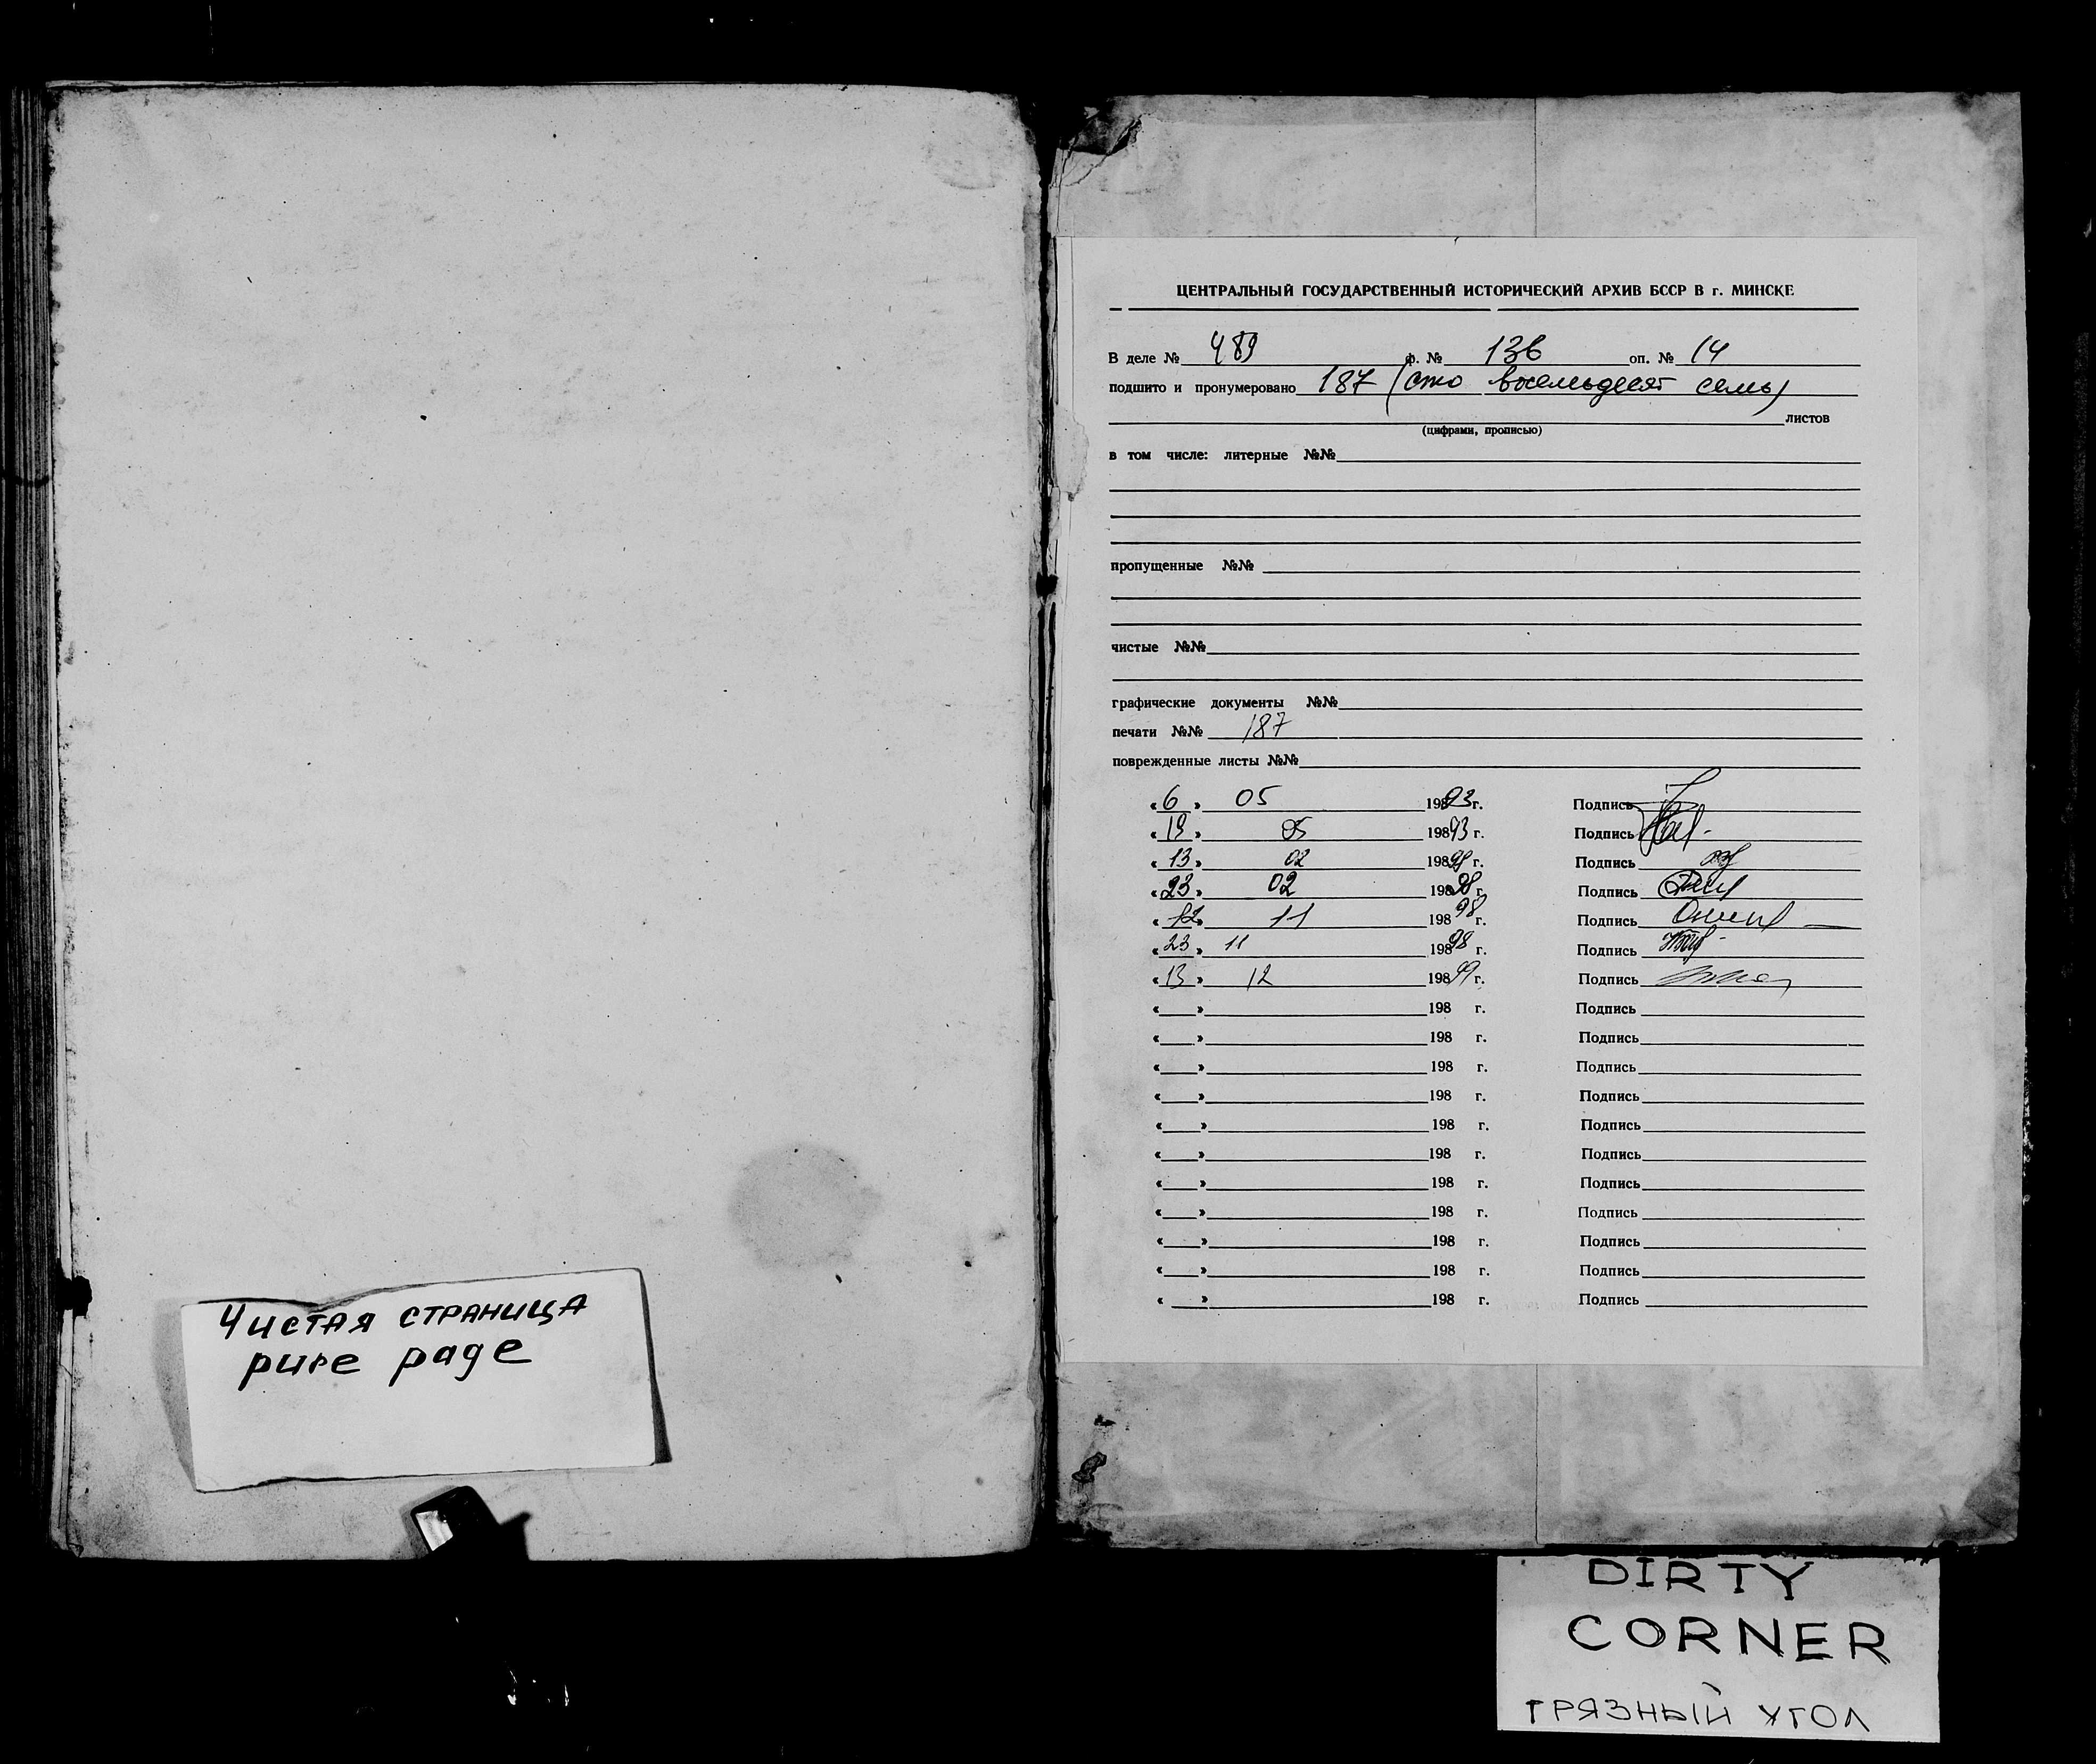 Чистая страница
pure page
ЦЕНТРАЛЬНЫЙ ГОСУДАРСТВЕННЫЙ ИСТОРИЧЕСКИЙ АРХИВ БССР В г. МИНСКЕ
В деле № 489 ф. № 136 оп. № 14
подшито и пронумеровано 187 (сто восемьдесят семь)
листов
(цифрами, прописью)
в том числе: литерные №№
пропущенные №№
чистые №№
графические документы №№
печати №№ 187
поврежденные листы №№
« 6 » 05 198 93 г. Подпись
« 19 » 05 198 93 г. Подпись
« 13 » 02 198 г. Подпись
« 23 » 02 198 98 г. Подпись
« 12 » 11 198 98 г. Подпись
« 23 » 11 198 98 г. Подпись
« 13 » 12 198 99 г. Подпись
« » 198 г. Подпись
« » 198 г. Подпись
« » 198 г. Подпись
« » 198 г. Подпись
« » 198 г. Подпись
« » 198 г. Подпись
« » 198 г. Подпись
« » 198 г. Подпись
« » 198 г. Подпись
« » 198 г. Подпись
« » 198 г. Подпись
DIRTY
CORNER
ГРЯЗНЫЙ УГОЛ